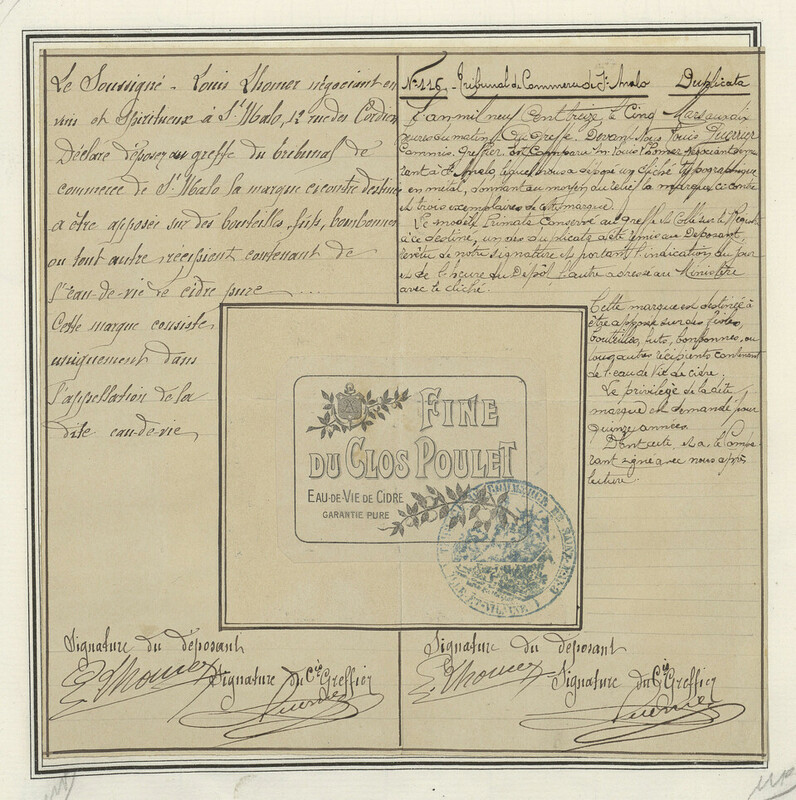 Le Soussigné - Louis Lhomer négociant en
vins et Spiritueux à St Malo, 12 rue des Cordiers
Déclare déposer au greffe du tribunal de
commerce de St Malo la marque ci contre destinée
a être apposée sur des bouteilles, fûts, bonbonnes
ou tout autre récipient contenant de
l'eau-de-vie de cidre pure
Cette marque consiste
uniquement dans
l'appellation de la
dite eau-de-vie
No 116 - Tribunal de Commerce de St Malo Duplicata
L'an mil neuf Cent treize, le Cinq Mars à
heures du matin, Au Greffe, Devant Nous Louis
Commis Greffier, Est Comparu Mr Louis Lhomer négociant
à St Malo, lequel nous a déposé un cliché typographique
en métal, donnant au moyen du relief la marque ci contre
et trois exemplaires de cette marque.
Le modèle Primata Conservé au greffe est Collé sur le Registre
à ce destiné, un des duplicata a été remis au Déposant,
revêtu de notre signature et portant l'indication du jour
et de l'heure du Dépôt, l'autre adressé au Ministère
avec le cliché.
Cette marque est destinée à
être apposée sur des
bouteilles, futs, bonbonnes, ou
tous autres récipients contenant
de l'eau de Vie de cidre.
Le privilège de la dite
marque est demandé pour
quinze années.
Dont acte et a le Compa-
rant signé avec nous après
lecture.
FINE
DU CLOS POULET
EAU-DE-VIE DE CIDRE
GARANTIE PURE
COMMERCE DE SAINT
ILLE-ET-VILAINE
Signature du déposant
L. Lhomer
Signature du Cis Greffier
Signature du déposant
L. Lhomer
Signature du Cis Greffier